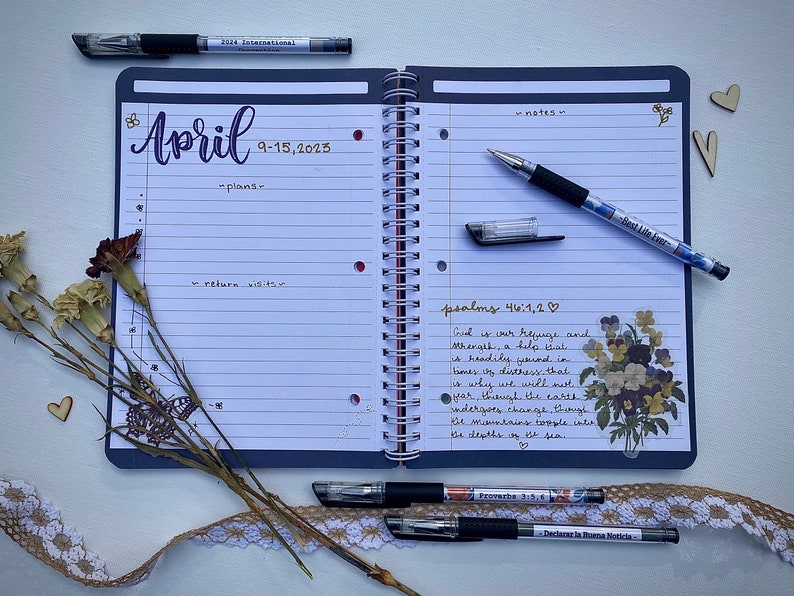 2024 International
Convention
April
9-15, 2023
~plans~
~return visits~
~notes~
~Best Life Ever~
psalms 46:1,2 ♡
God is our refuge and
strength, a help that
is readily found in
times of distress. that
is why we will not
fear, though the earth
undergoes change though
the mountains topple into
the depths of the sea.
♡
Proverbs 3:5,6
~ Declarar la Buena Noticia ~